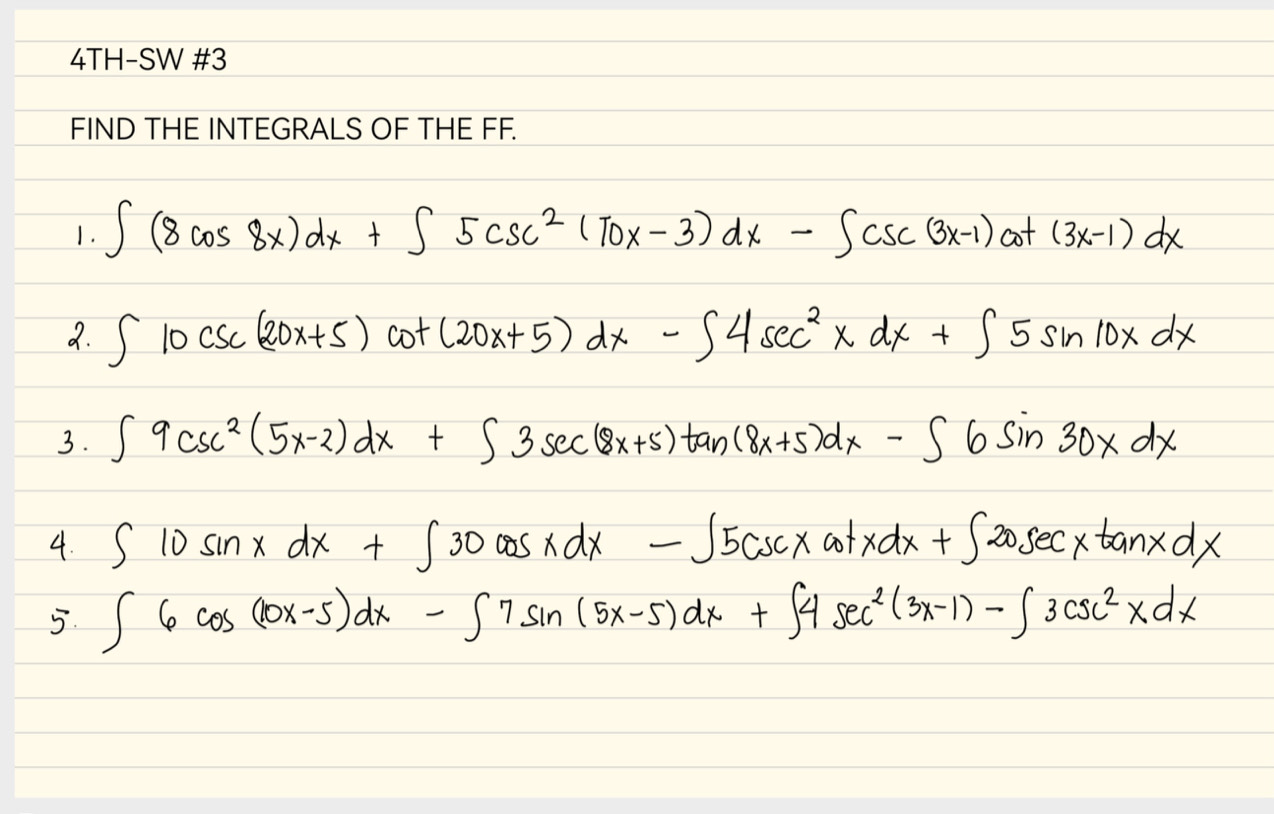 4TH-SW #3
FIND THE INTEGRALS OF THE FF.
1. ∫ (8 cos 8x) dx + ∫ 5 csc² (10x - 3) dx - ∫ csc (3x-1) cot (3x-1) dx
2. ∫ 10 csc (20x+5) cot (20x+5) dx - ∫ 4 sec² x dx + ∫ 5 sin 10x dx
3. ∫ 9 csc² (5x-2) dx + ∫ 3 sec (8x+5) tan (8x+5) dx - ∫ 6 sin 30x dx
4. ∫ 10 sin x dx + ∫ 30 cos x dx - ∫ 5 csc x cot x dx + ∫ 20 sec x tan x dx
5. ∫ 6 cos (10x-5) dx - ∫ 7 sin (5x-5) dx + ∫ 4 sec² (3x-1) - ∫ 3 csc² x dx